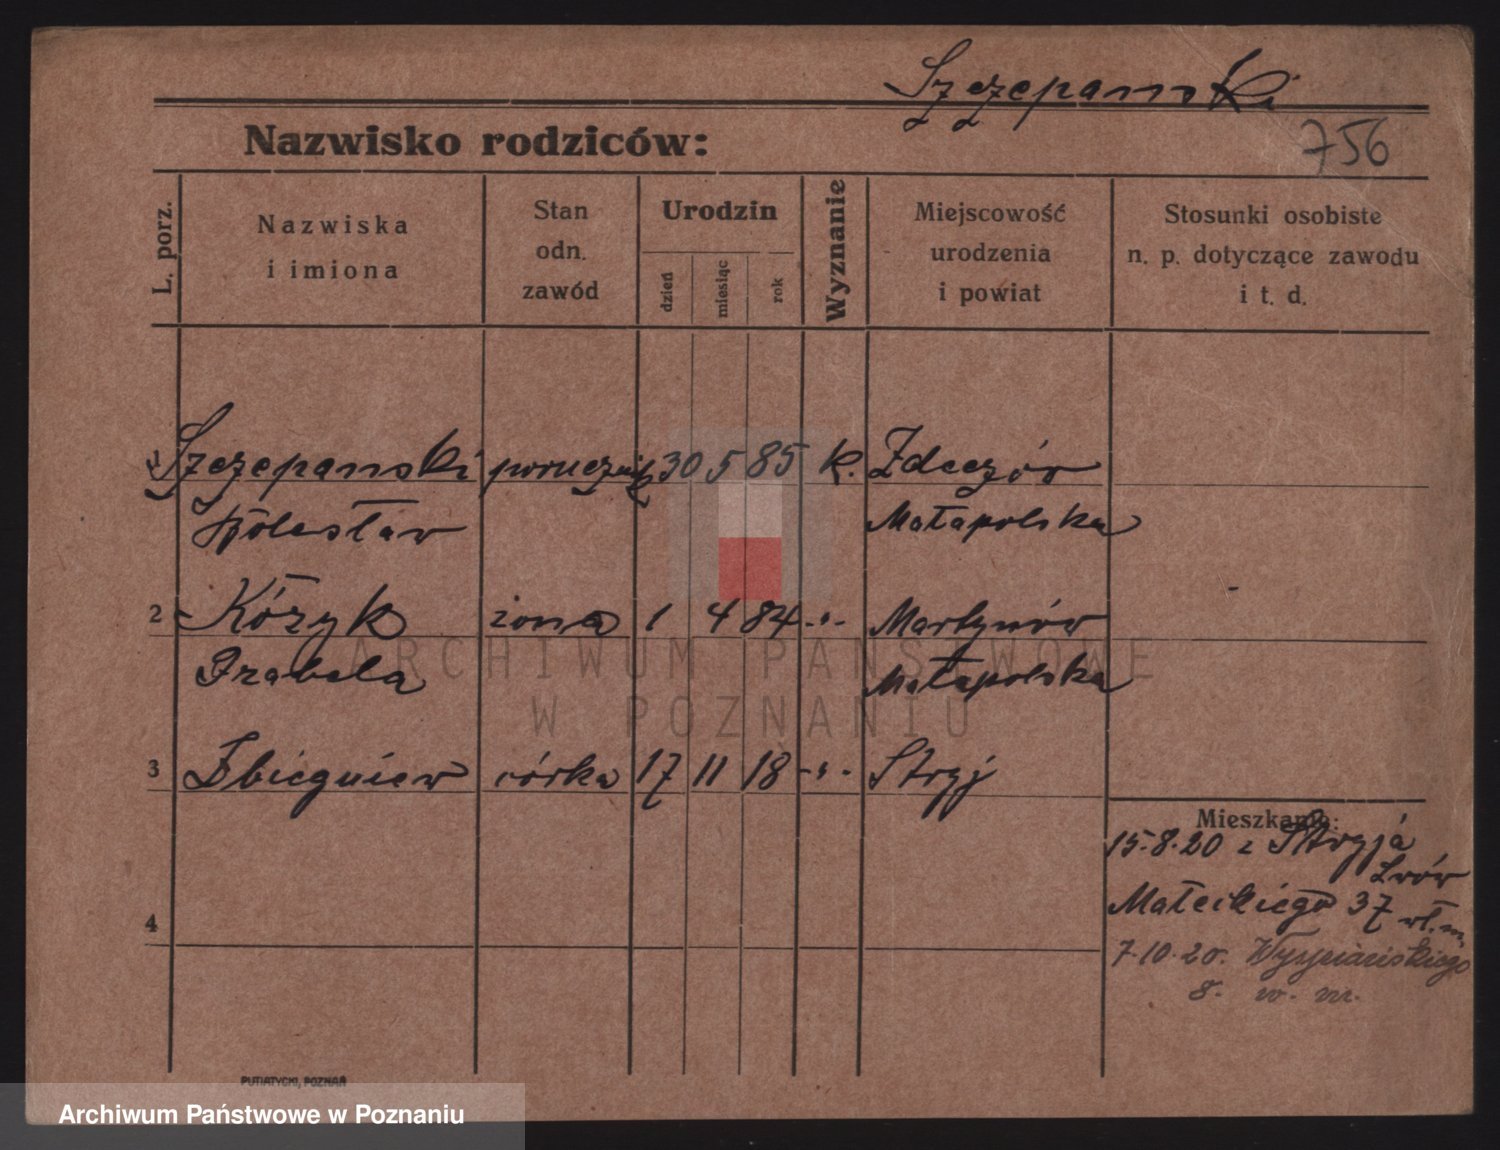 Szczepanski
Nazwisko rodziców:
756
L. porz.
Nazwiska
i imiona
Stan
odn.
zawód
Urodzin
dzień
miesiąc
rok
Wyznanie
Miejscowość
urodzenia
i powiat
Stosunki osobiste
n. p. dotyczące zawodu
i t. d.
1 Szczepanski porucznik 30 5 85 k. Zdeczów
Bolesław Małapolska
2 Kózyk żona 1 4 84 -"- Martynów
Izabela Małapolska
3 Zbiegniew córka 17 11 18 -"- Stryj
Mieszkanie:
15.8.20 z Stryjá
Lwów
Małeckiego 37 wł. m.
4
7.10.20. Wyspiańskiego
8. w. m.
PUTIATYCKI, POZNAŃ
ARCHIWUM PAŃSTWOWE
W POZNANIU
Archiwum Państwowe w Poznaniu